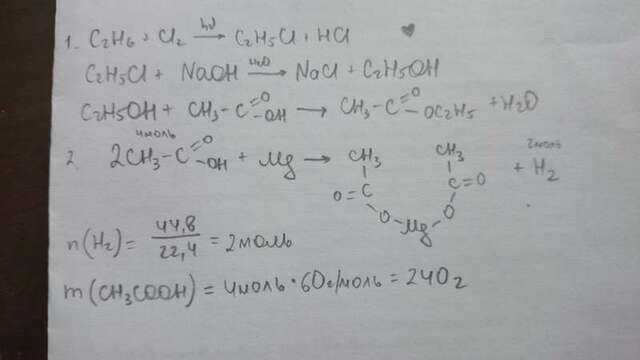 1. C2H6 + Cl2 —hν→ C2H5Cl + HCl
C2H5Cl + NaOH —H2O→ NaCl + C2H5OH
C2H5OH + CH3-C=O-OH → CH3-C=O-OC2H5 + H2O
4моль 2моль
2. 2CH3-C=O-OH + Mg → CH3 CH3 + H2
O=C C=O
O-Mg-O
n(H2) = 44,8/22,4 = 2моль
m(CH3COOH) = 4моль·60г/моль = 240г